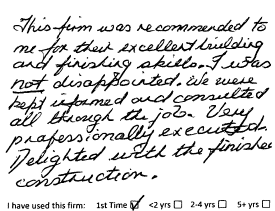 This firm was recommended to
me for their excellent building
and finishing skills. I was
not disappointed. We were
kept informed and consulted
all through the job. Very
professionally executed.
Delighted with the finished
construction.
I have used this firm: 1st Time ☑ <2 yrs ☐ 2-4 yrs ☐ 5+ yrs ☐